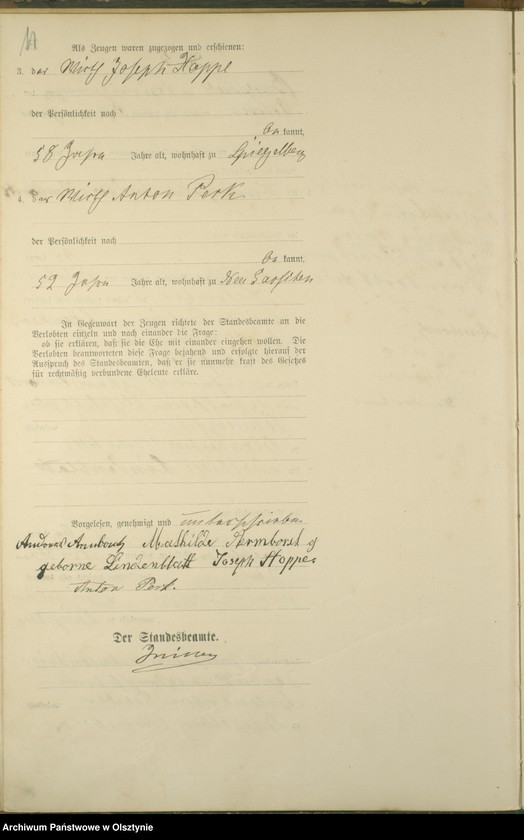 Als Zeugen waren zugezogen und erschienen:
3. der Wirth Joseph Hoppe
der Persönlichkeit nach
be kannt,
58 Jahre Jahre alt, wohnhaft zu Spiegelberg
4. der Wirth Anton Perk
der Persönlichkeit nach
be kannt,
52 Jahre Jahre alt, wohnhaft zu Neu
In Gegenwart der Zeugen richtete der Standesbeamte an die
Verlobten einzeln und nach einander die Frage:
ob sie erklären, daß sie die Ehe mit einander eingehen wollen. Die
Verlobten beantworteten diese Frage bejahend und erfolgte hierauf der
Ausspruch des Standesbeamten, daß er sie nunmehr kraft des Gesetzes
für rechtmäßig verbundene Eheleute erkläre.
Vorgelesen, genehmigt und unterschrieben
Andreas Mathilde
geborne Lindenblatt Joseph Hoppe
Anton Perk.
Der Standesbeamte.
Archiwum Państwowe w Olsztynie